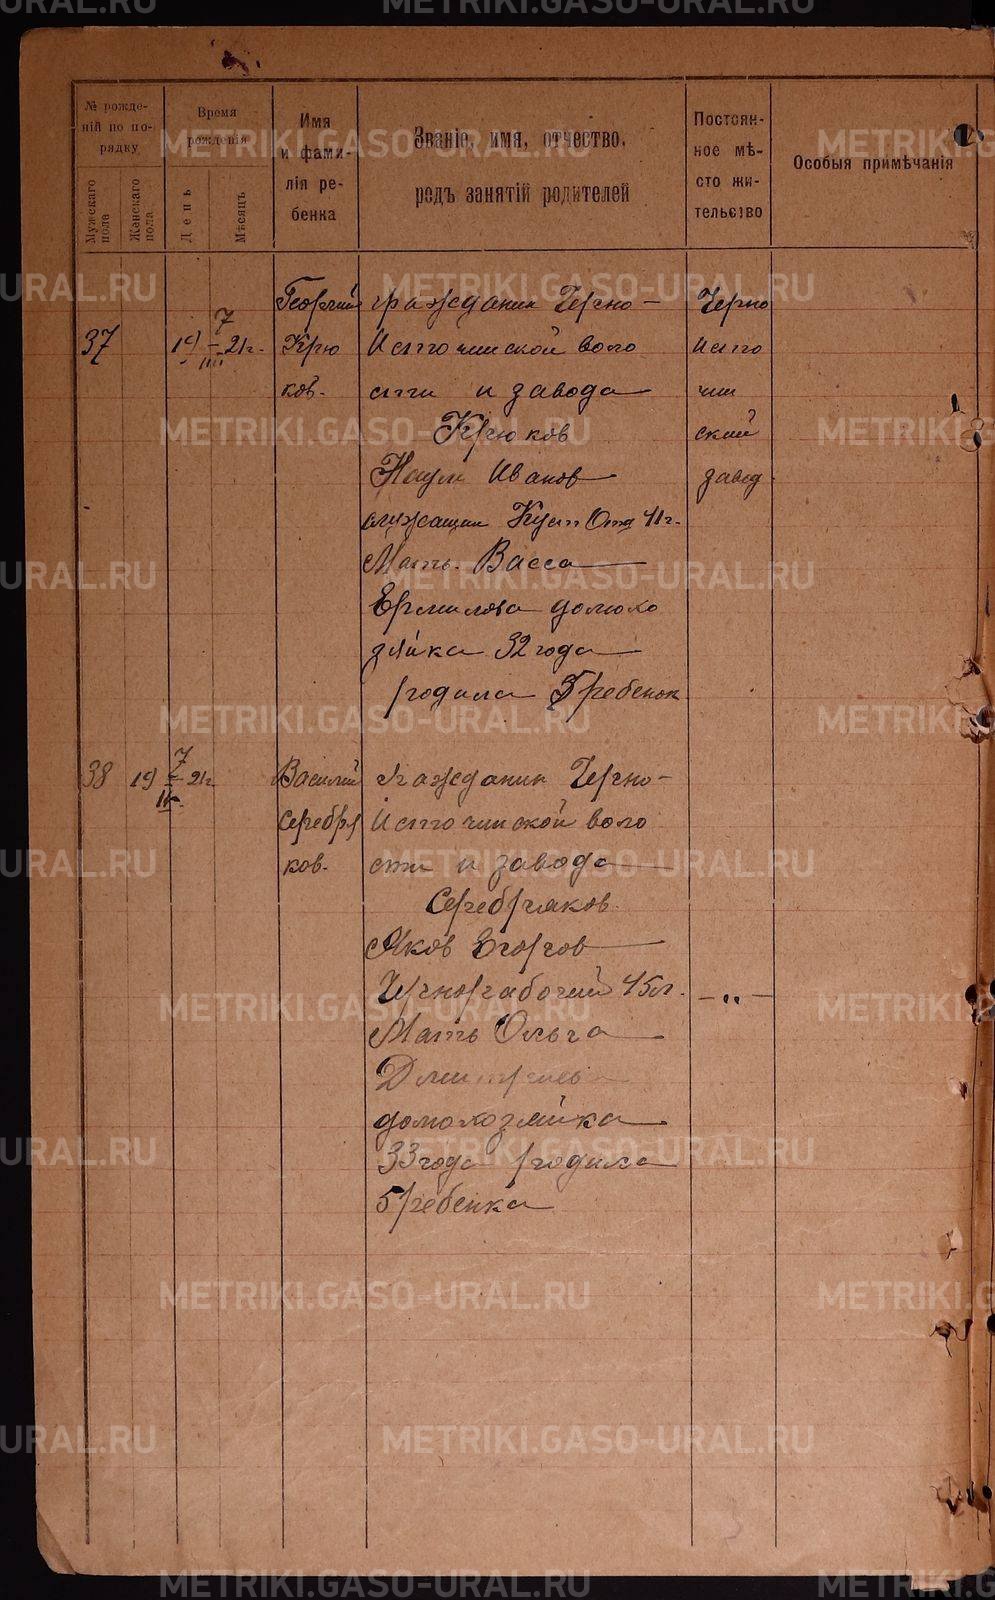 METRIKI.GASO-URAL.RU
№ рожде-
ній по по-
рядку
Мужскаго
поле
Женскаго
пола
Время
рожденія
День
Мѣсяцъ
Имя
и фами-
лія ре-
бенка
Званіе, имя, отчество,
родъ занятій родителей
Постоян-
ное мѣ-
сто жи-
тельство
Особыя примѣчанія
37
19 7/III 21г.
Георгий
Крю
ков.
гражданин Черно-
Источинской воло
сти и завода
Крюков
Наум Иванов
служащий Куст Отд 41г.
Мать. Васса
Ермилова домохо
зяйка 32 года
родила 3 ребенок
Черно
исто
чин
ский
завод
38
19 7/III 21г.
Василий
Серебря
ков.
гражданин Черно-
Источинской воло
сти и завода
Серебряков
Яков Егоров
Чернорабочий 45л.
Мать Ольга
Дмитриева
домохозяйка
33 года родила
5 ребенка
- „ -